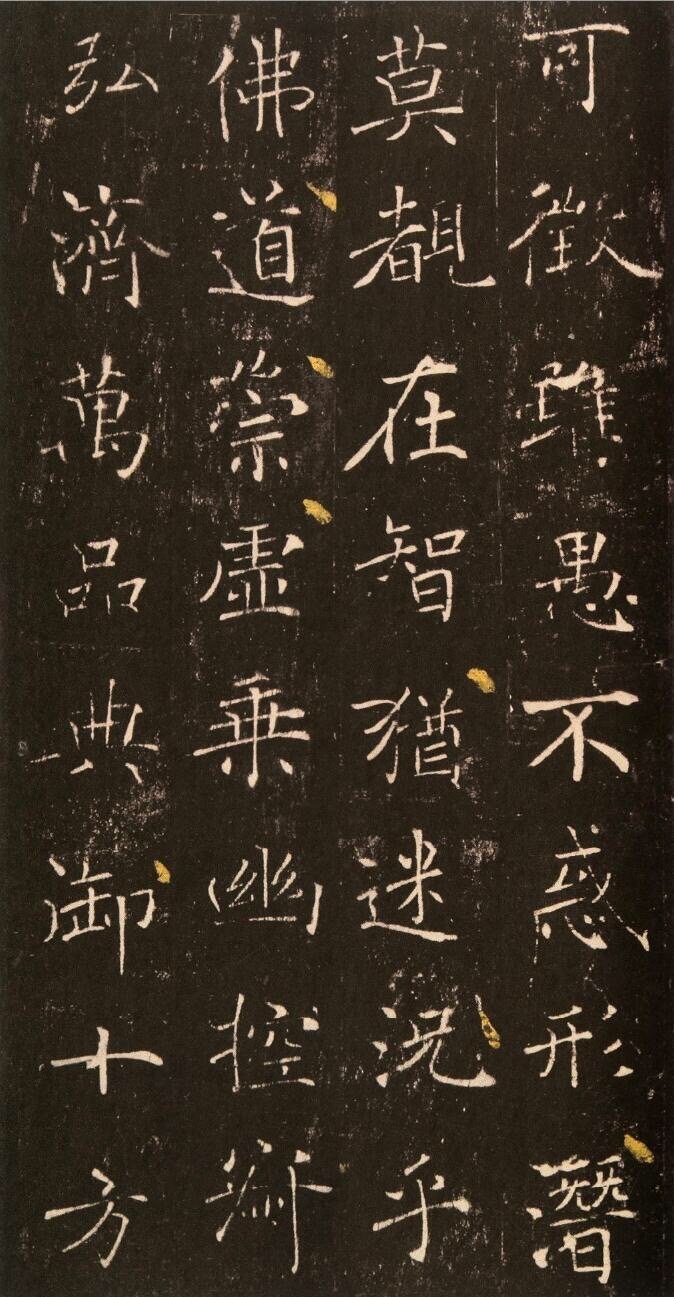 可徵雖愚不惑形潛
莫覩在智猶迷況乎
佛道崇虛乗幽控寂
弘濟萬品典御十方